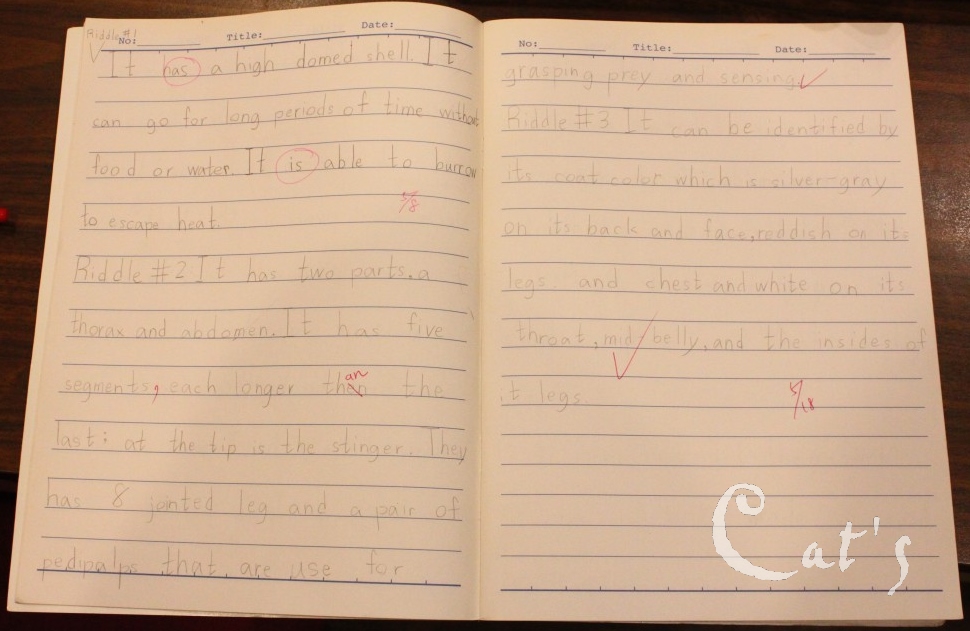 Riddle #1
No: Title: Date:
It has a high domed shell. It
can go for long periods of time without
food or water. It is able to burrow
to escape heat.
5/8
Riddle #2 It has two parts. a
thorax and abdomen. It has five
segments, each longer than the
an
last: at the tip is the stinger. They
has 8 jointed leg and a pair of
pedipalps that are use for
No: Title: Date:
grasping prey and sensing.
Riddle #3 It can be identified by
its coat color which is silver-gray
on its back and face, reddish on its
legs and chest and white on its
throat, mid belly, and the insides of
it legs.
5/18
Cat's